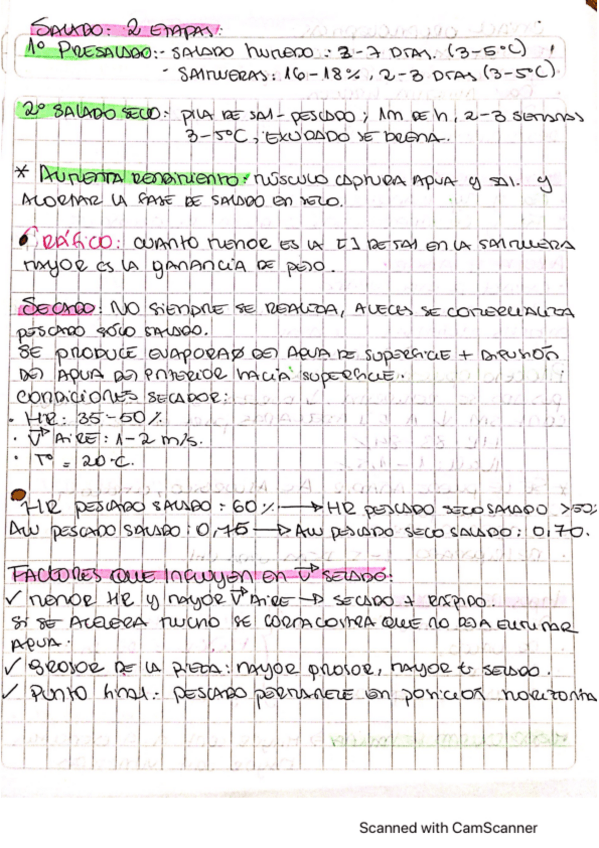 SALADO: 2 ETAPAS:
1º PRESALADO:- SALADO HÚMEDO: 3-7 DÍAS. (3-5ºC)
- SALMUERAS: 16-18%, 2-3 DÍAS (3-5ºC)
2º SALADO SECO: PILA DE SAL-PESCADO; 1m DE h, 2-3 SEMANAS
3-5ºC, EXUDADO SE DRENA.
* AUMENTA RENDIMIENTO: MÚSCULO CAPTURA AGUA Y SAL. Y
ACORTAR LA FASE DE SALADO EN SECO.
GRÁFICO: CUANTO MENOR ES LA [] DE SAL EN LA SALMUERA
MAYOR ES LA GANANCIA DE PESO.
SECADO: NO SIEMPRE SE REALIZA, A VECES SE COMERCIALIZA
PESCADO SÓLO SALADO.
SE PRODUCE EVAPORAØ DEL AGUA DE SUPERFICIE + DIFUSIÓN
DEL AGUA DEL INTERIOR HACIA SUPERFICIE.
CONDICIONES SECADOR:
· HR: 35-50%
· V AIRE: 1-2 m/s.
· Tº = 20ºC.
HR PESCADO SALADO: 60% → HR PESCADO SECO SALADO >50%
AW PESCADO SALADO: 0,75 → AW PESCADO SECO SALADO: 0,70.
FACTORES QUE INFLUYEN EN V SECADO:
✓ MENOR HR Y MAYOR V AIRE → SECADO + RÁPIDO.
SI SE ACELERA MUCHO SE FORMA COSTRA QUE NO DEJA ELIMINAR
AGUA.
✓ GROSOR DE LA PIEZA: MAYOR GROSOR, MAYOR t SECADO.
✓ PUNTO FINAL: PESCADO PERMANECE EN POSICIÓN HORIZONTA
Scanned with CamScanner